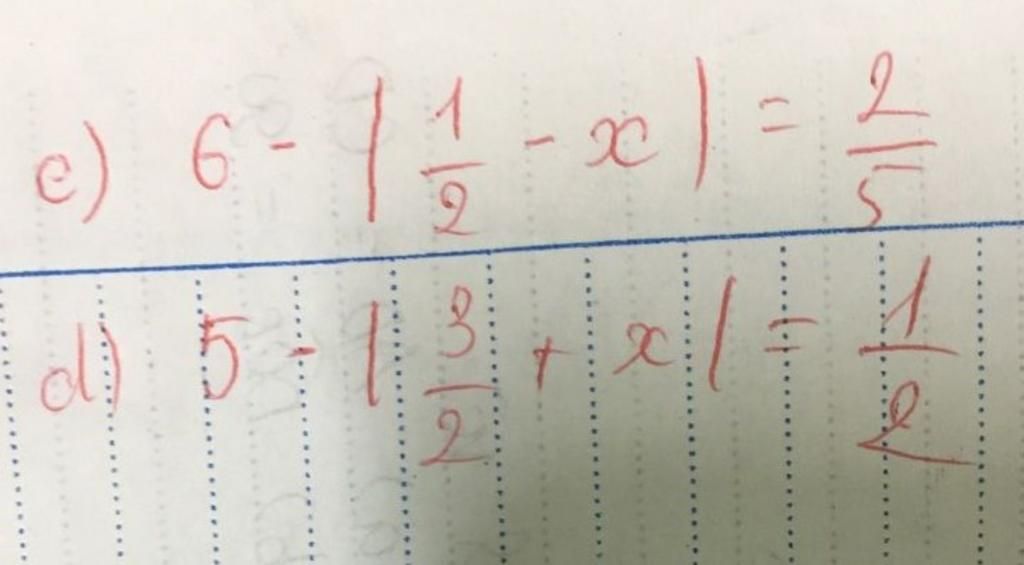 c) 6 - | 1/2 - x | = 2/5
d) 5 - | 3/2 + x | = 1/2